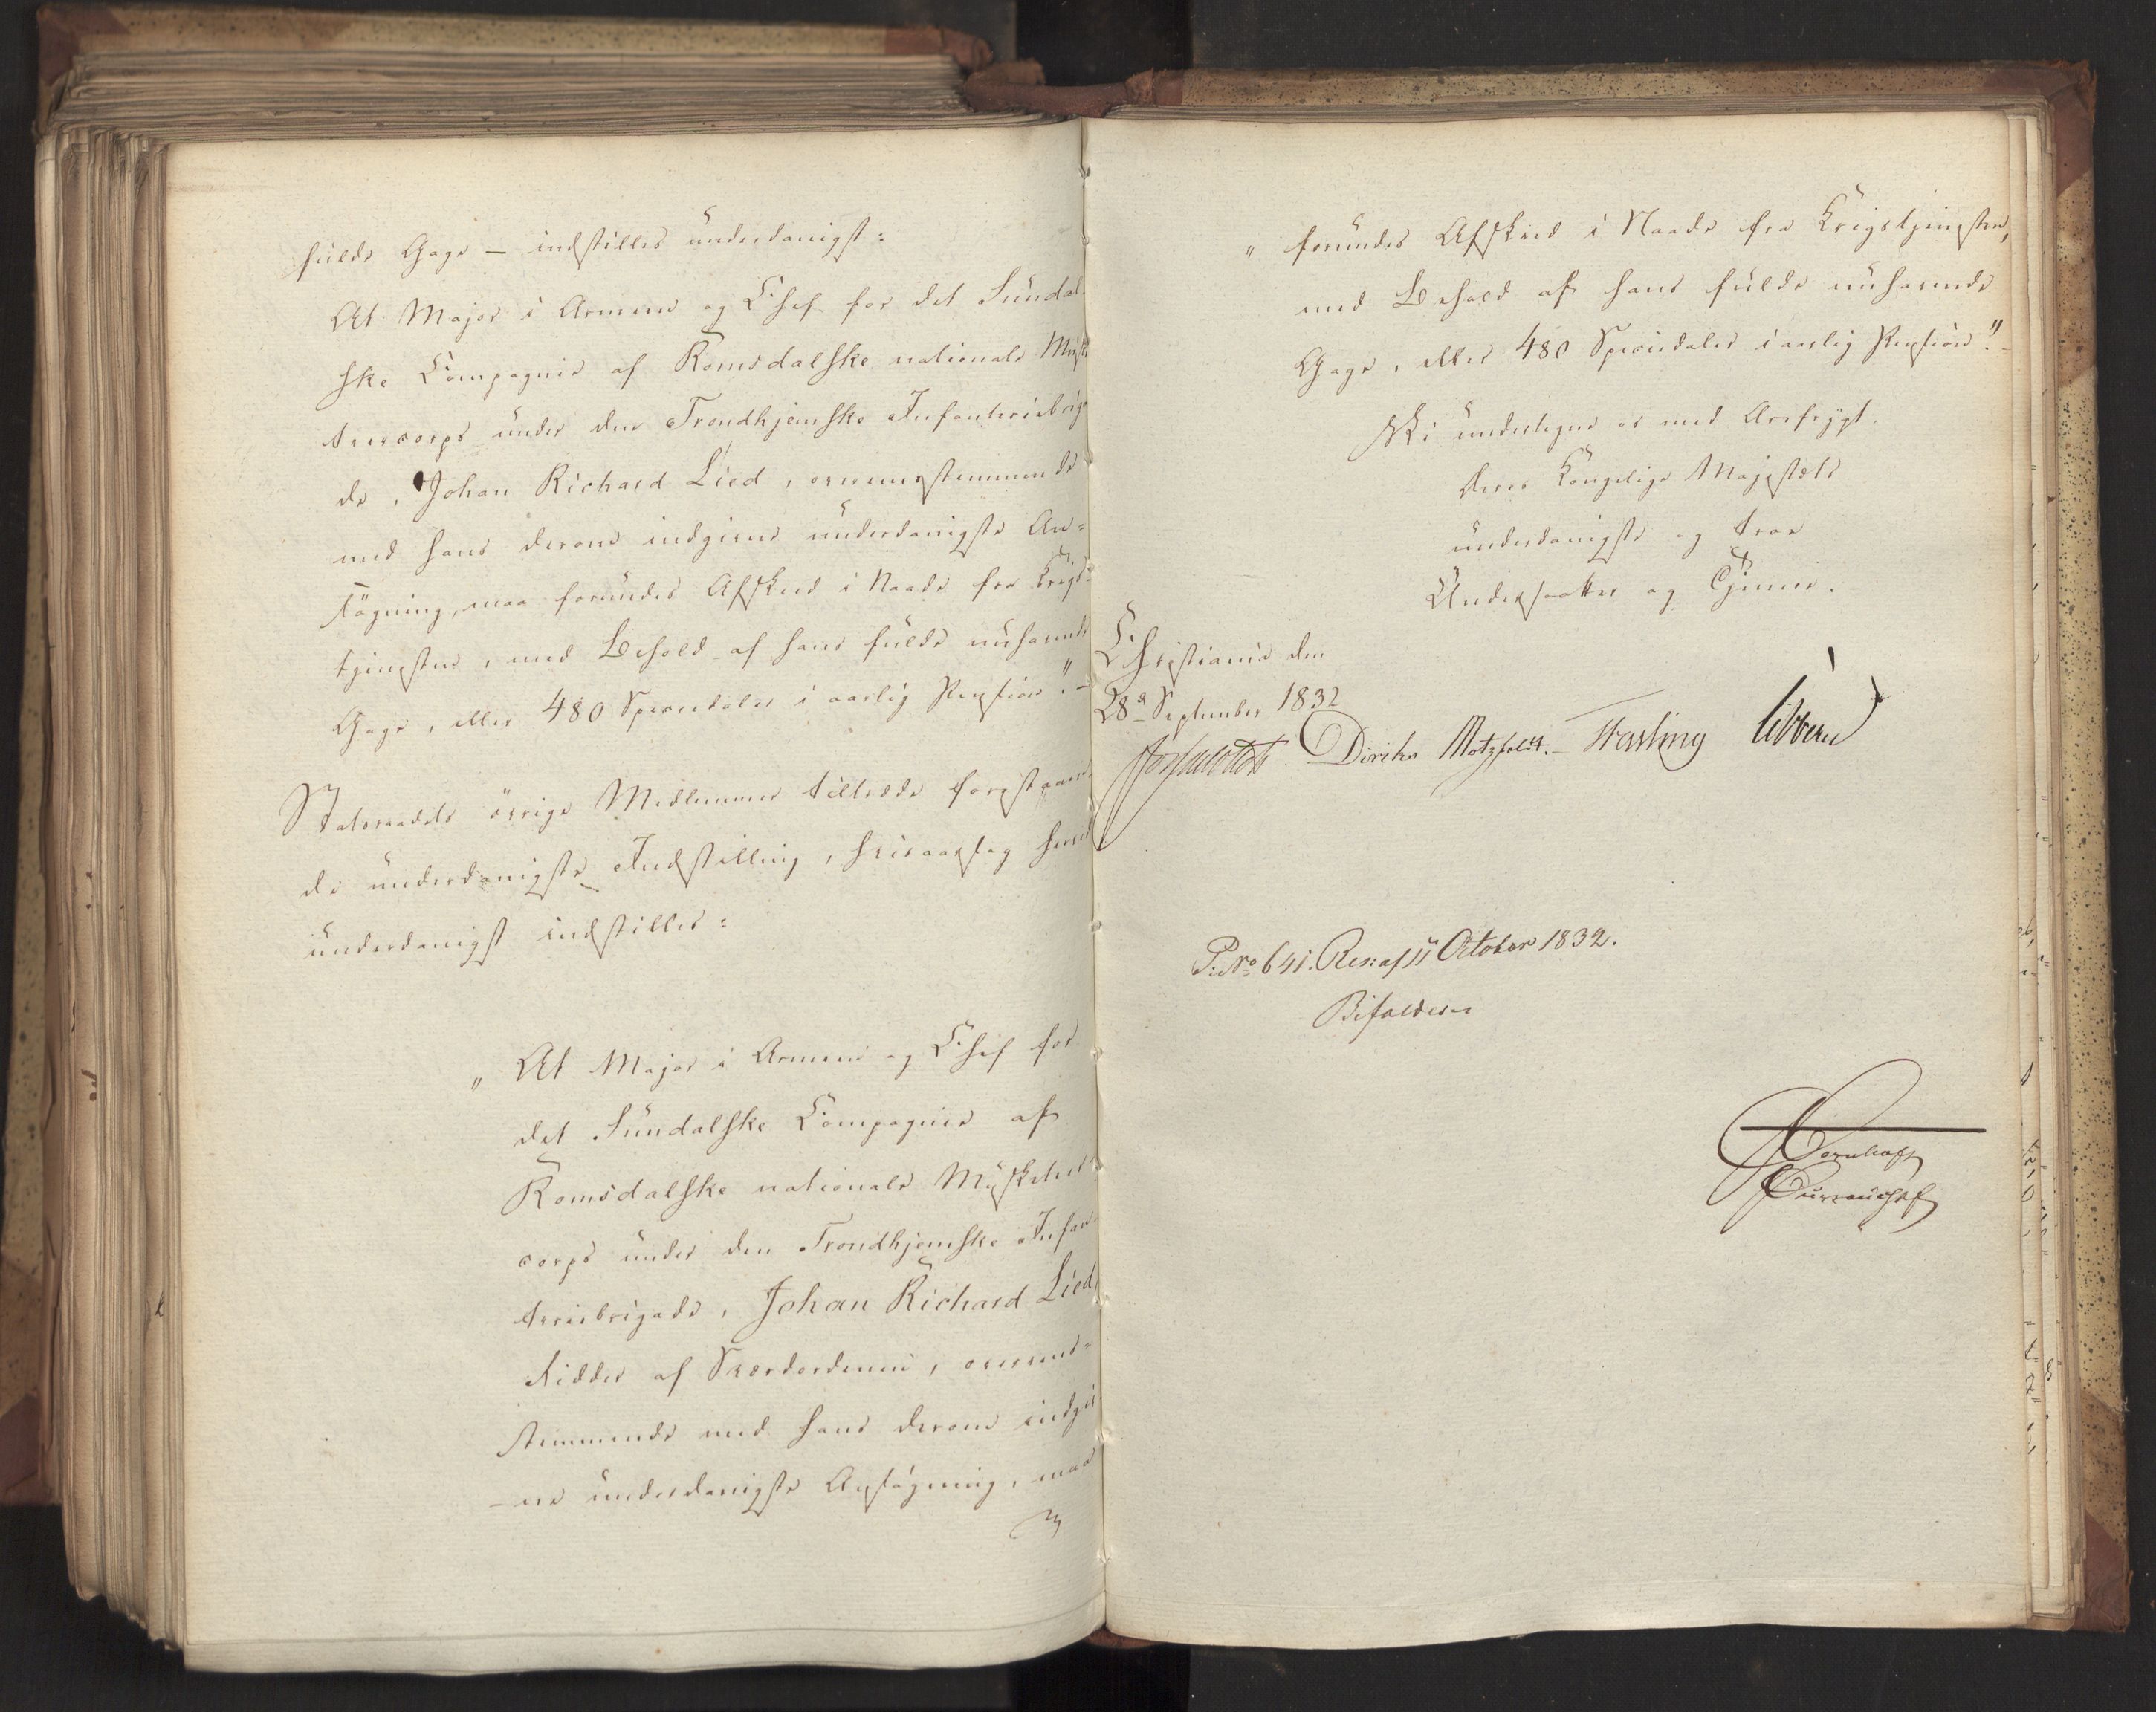 fulde Gage — indstilles underdanigst:
At Major i Armeen og Chef for det Sundal-
ske Compagnie af Romsdalske nationale Muske-
teercorps under den Trondhjemske Infanteriebriga-
de, Johan Richard Lied, overeensstemmende
med hans derom indgivne underdanigste An-
søgning, maa forundes Afskeed i Naade fra Krigs-
tjenesten, med Behold af hans fulde nuhavende
Gage, eller 480 Speciedaler i aarlig Pension." –
Statsraadets øvrige Medlemmer tiltræde forestaaen-
de underdanigste Indstilling, hvisaarsag herved
underdanigst indstilles:
„At Major i Armeen og Chef for
det Sundalske Compagnie af
Romsdalske nationale Musketeer-
corps under den Trondhjemske Infan-
teriebrigade, Johan Richard Lied,
Ridder af Sværdordenen, overeens-
stemmende med hans derom indgiv-
ne underdanigste Ansøgning, maa
„forundes Afskeed i Naade fra Krigstjenesten,
med Behold af hans fulde nuhavende
Gage, eller 480 Speciedaler i aarlig Pension." –
Vi undertegne os med Ærefrygt.
Deres Kongelige Majestæts
underdanigste og troe
Undersaatter og Tjenere. –
Christiania den
28d September 1832
Diriks Motzfeldt. – Fasting Vibbern
P. No 641. Res: af 11 October 1832.
Bifaldes